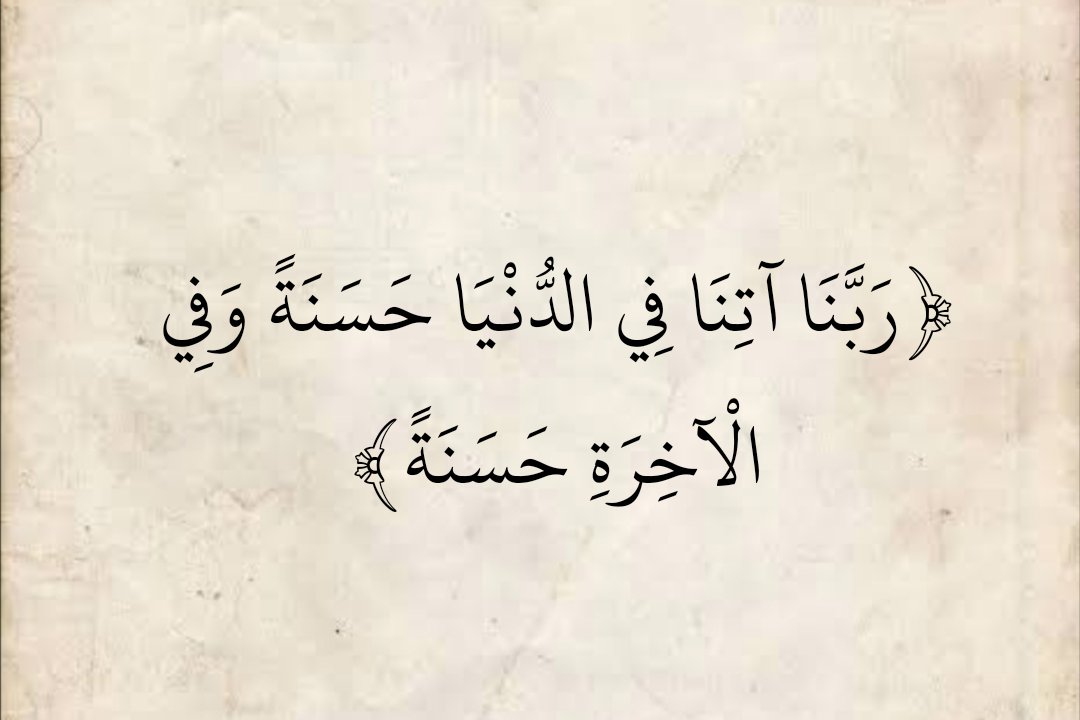 ﴿رَبَّنَا آتِنَا فِي الدُّنْيَا حَسَنَةً وَفِي
الْآخِرَةِ حَسَنَةً﴾